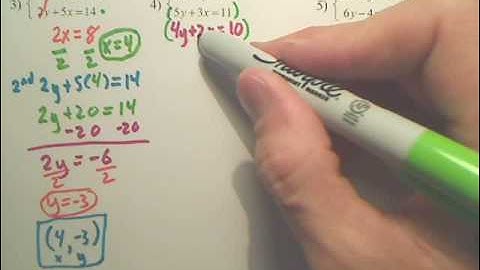 3) { 2y+5x=14
2x = 8
2 2 x=4
2nd 2y+5(4)=14
2y+20=14
-20 -20
2y = -6
2 2
y=-3
(4,-3)
x y
4) { 5y+3x=11 )
(4y+2x=10)
Sharpie
5) {
6y-4